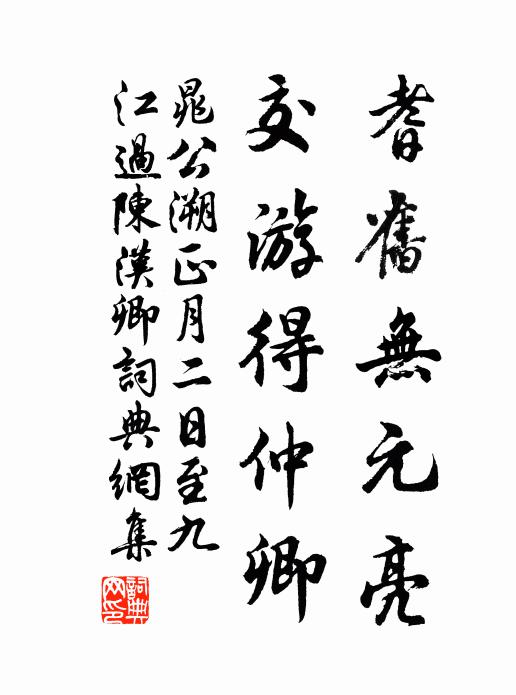 耆舊無元亮
交游得仲卿
晁公溯正月二日至九
江過陳漢卿詞典網集
詞典網印